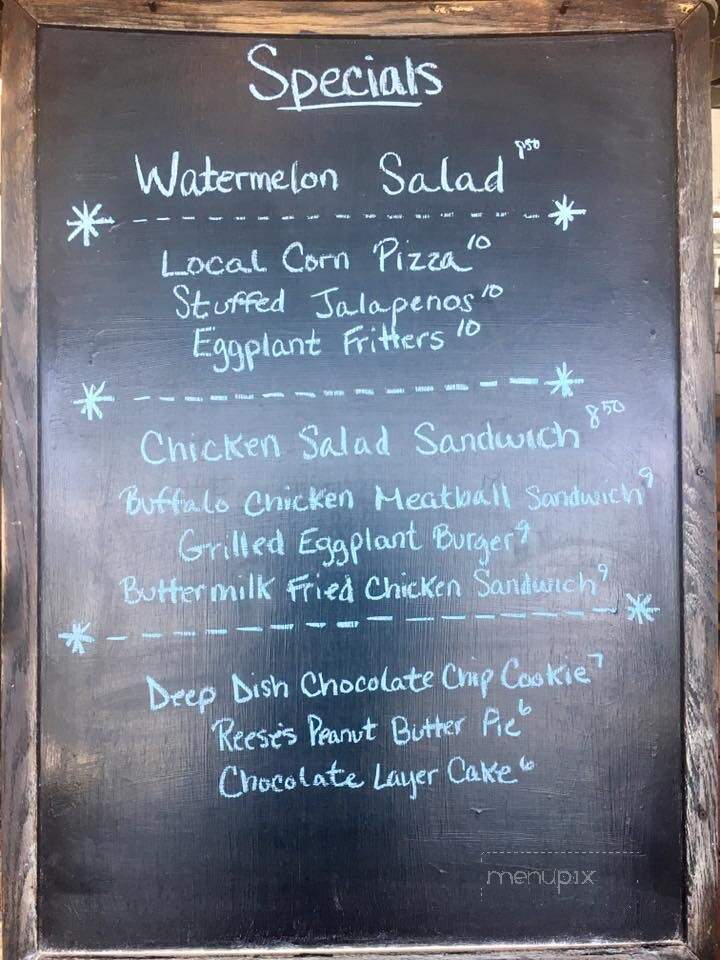 Specials
Watermelon Salad 8.50
Local Corn Pizza 10
Stuffed Jalapenos 10
Eggplant Fritters 10
Chicken Salad Sandwich 8.50
Buffalo Chicken Meatball Sandwich 9
Grilled Eggplant Burger 9
Buttermilk Fried Chicken Sandwich 9
Deep Dish Chocolate Chip Cookie 7
Reese's Peanut Butter Pie 6
Chocolate Layer Cake 6
menupix